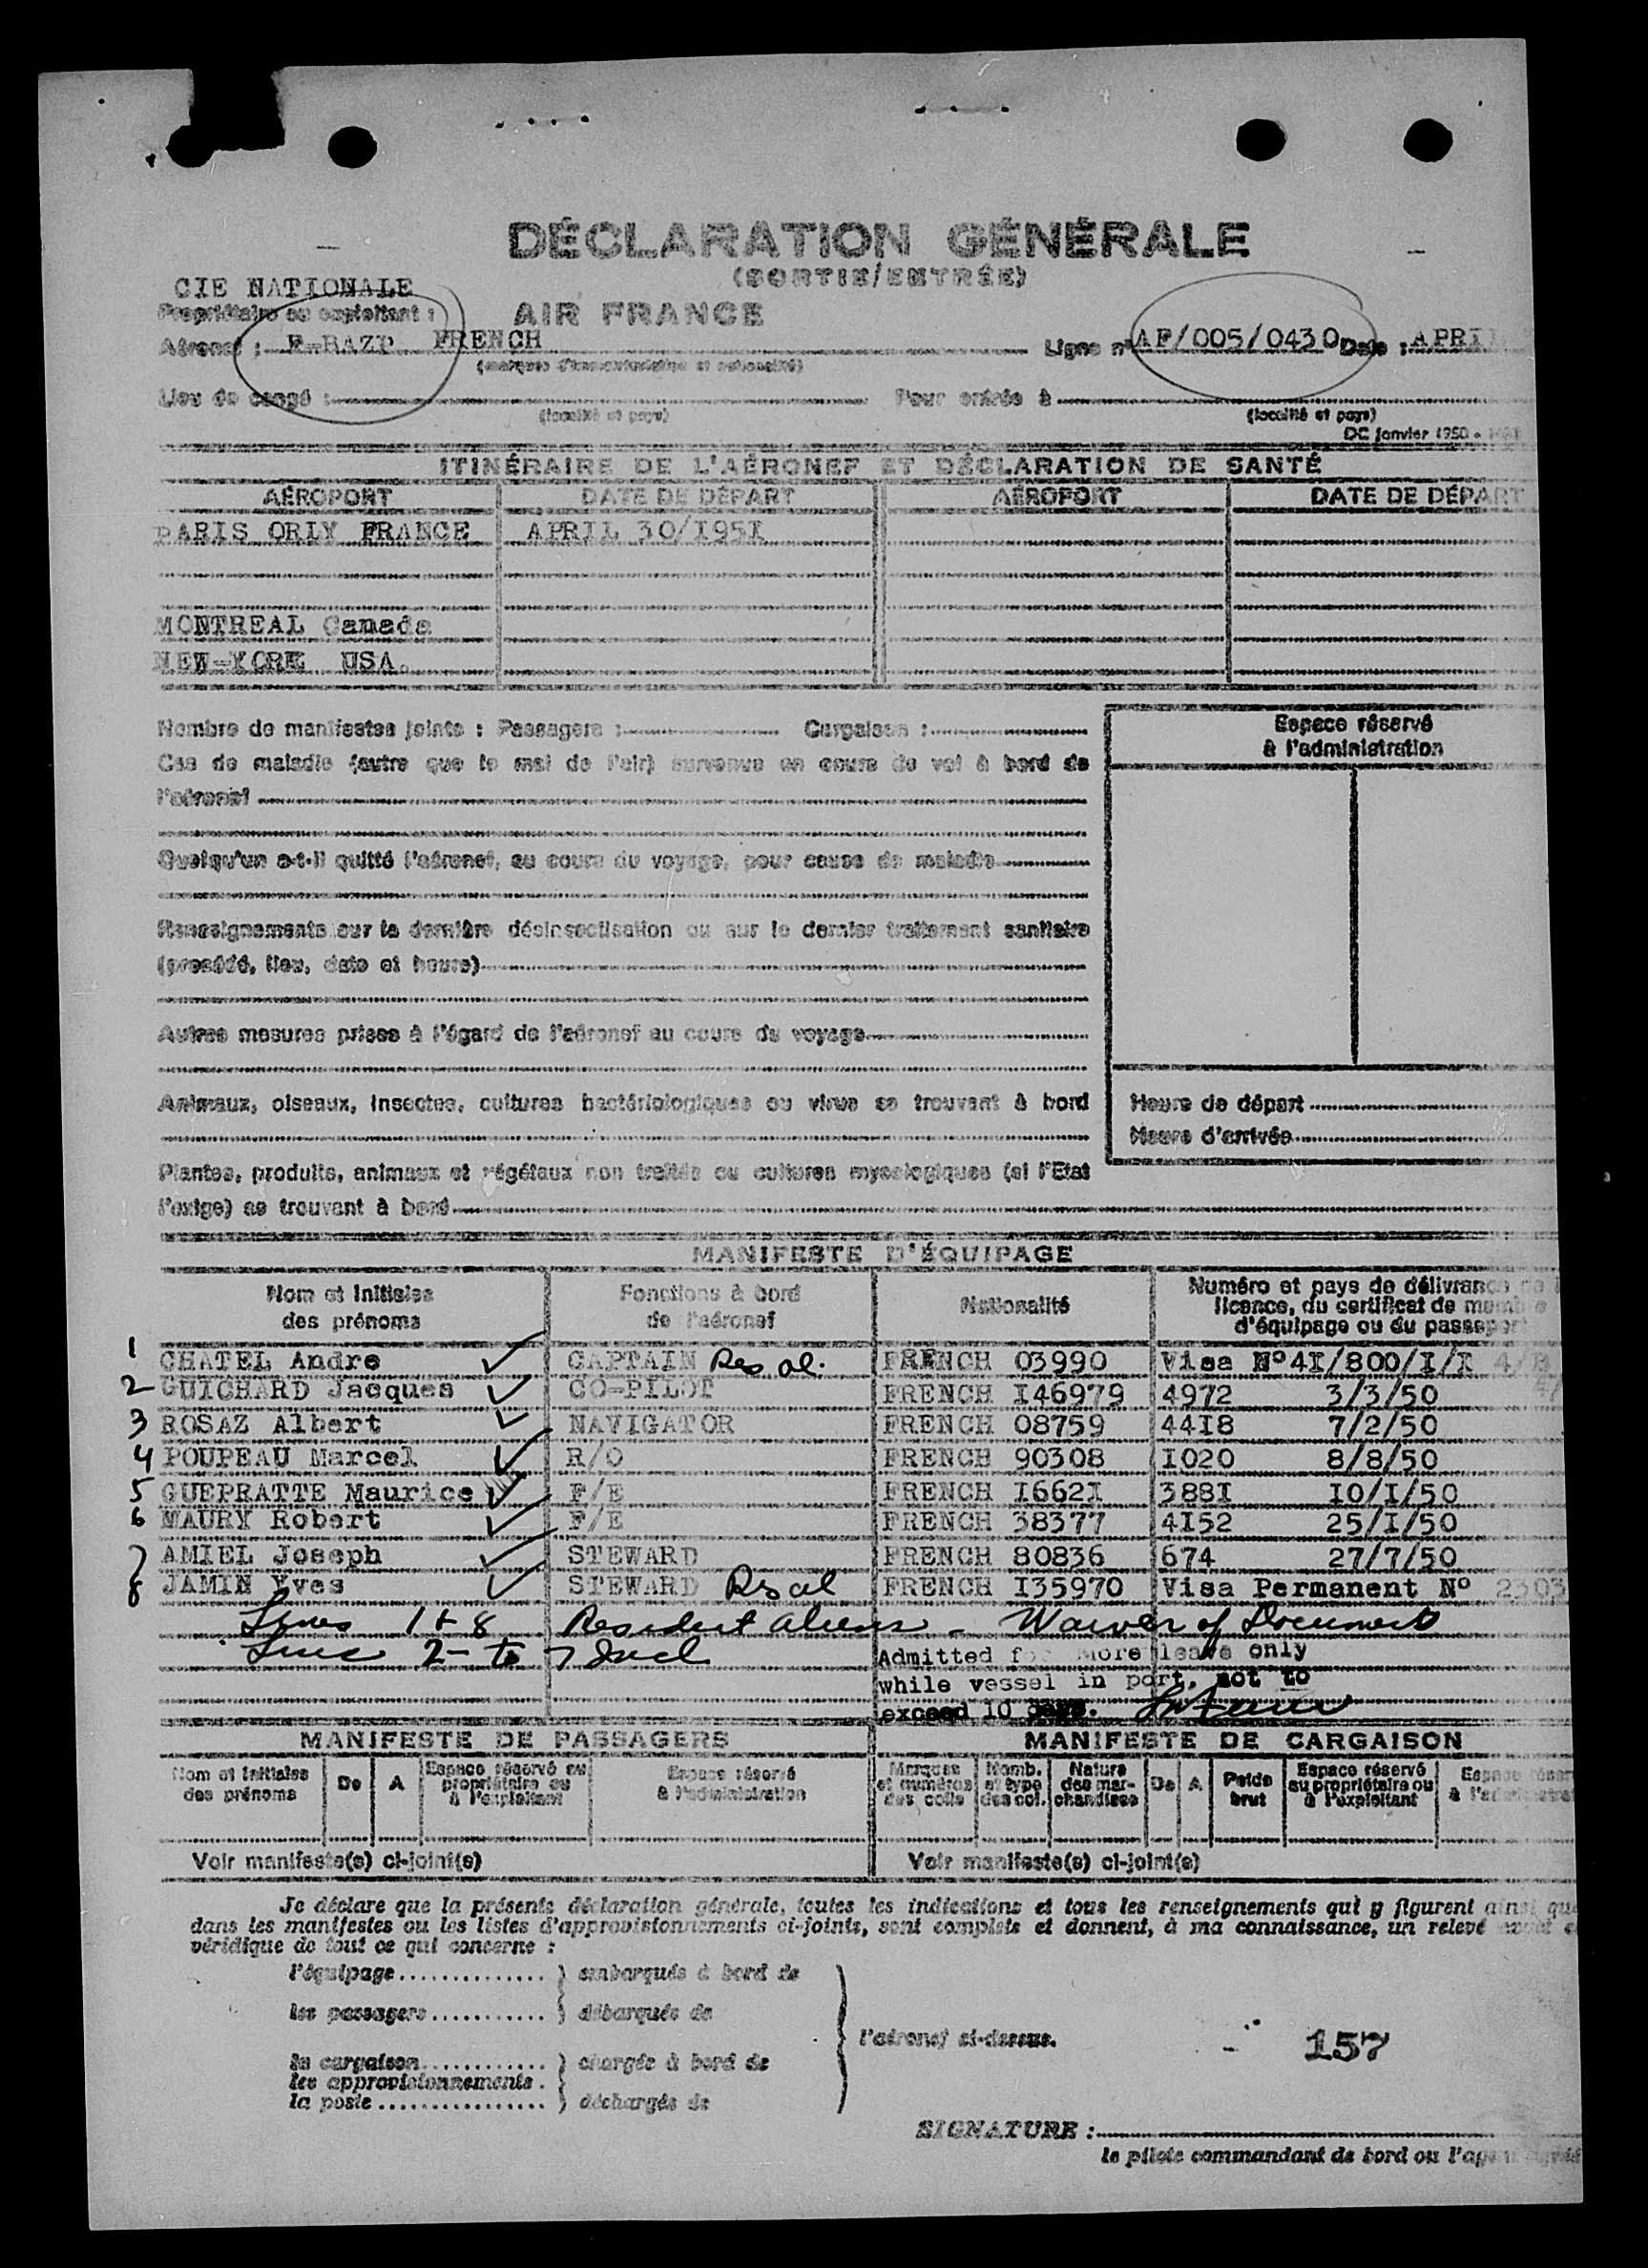 DÉCLARATION GÉNÉRALE
(SORTIE/ENTRÉE)
CIE NATIONALE
Propriétaire ou exploitant : AIR FRANCE
Aéronef : F-BAZP FRENCH Ligne n° AF/005/0430 Date : APRI
(marques d'immatriculation et nationalité)
Lieu de congé : Pour entrée à
(localité et pays) (localité et pays)
DC janvier 1950
ITINÉRAIRE DE L'AÉRONEF ET DÉCLARATION DE SANTÉ
AÉROPORT DATE DE DÉPART AÉROPORT DATE DE DÉPART
PARIS ORLY FRANCE APRIL 30/I95I
MONTREAL Canada
NEW-YORK USA.
Nombre de manifestes joints : Passagers : Cargaison :
Espace réservé
à l'administration
Cas de maladie (autre que le mal de l'air) survenus en cours de vol à bord de
l'aéronef
Quelqu'un a-t-il quitté l'aéronef, au cours du voyage, pour cause de maladie
Renseignements sur la dernière désinsectisation ou sur le dernier traitement sanitaire
(procédé, lieu, date et heure)
Autres mesures prises à l'égard de l'aéronef au cours du voyage
Animaux, oiseaux, insectes, cultures bactériologiques ou virus se trouvant à bord
Heure de départ
Heure d'arrivée
Plantes, produits, animaux et végétaux non traités ou cultures mycologiques (si l'Etat
l'exige) se trouvant à bord
MANIFESTE D'ÉQUIPAGE
Nom et initiales
des prénoms
Fonctions à bord
de l'aéronef
Nationalité
Numéro et pays de délivrance de
licence, du certificat de membre
d'équipage ou du passeport
1 CHATEL Andre CAPTAIN Res al. FRENCH 03990 Visa N°4I/800/I/I
2 GUICHARD Jacques CO-PILOT FRENCH I46979 4972 3/3/50
3 ROSAZ Albert NAVIGATOR FRENCH 08759 44I8 7/2/50
4 POUPEAU Marcel R/O FRENCH 90308 I020 8/8/50
5 GUEPRATTE Maurice F/E FRENCH I662I 388I I0/I/50
6 MAURY Robert F/E FRENCH 38377 4I52 25/I/50
7 AMIEL Joseph STEWARD FRENCH 80836 674 27/7/50
8 JAMIN Yves STEWARD Rs al FRENCH I35970 Visa Permanent N° 2303
Lines 1+8 Resident aliens - Waiver of Documents
Line 2- to 7 Incl
Admitted for shore leave only
while vessel in port, not to
exceed 10 days.
MANIFESTE DE PASSAGERS MANIFESTE DE CARGAISON
Nom et initiales
des prénoms
De A
Espace réservé au
propriétaire ou
à l'exploitant
Espace réservé
à l'administration
Marques
et numéros
des colis
Nomb.
et type
des col.
Nature
des mar-
chandises
De A
Poids
brut
Espace réservé
au propriétaire ou
à l'exploitant
Espace
Voir manifeste(s) ci-joint(s) Voir manifeste(s) ci-joint(s)
Je déclare que la présente déclaration générale, toutes les indications et tous les renseignements qui y figurent ainsi que
dans les manifestes ou les listes d'approvisionnements ci-joints, sont complets et donnent, à ma connaissance, un relevé
véridique de tout ce qui concerne :
l'équipage .............. } embarqués à bord de
les passagers ........... } débarqués de
l'aéronef ci-dessus.
la cargaison ............ } chargés à bord de
les approvisionnements .
la poste ................ } déchargés de
157
SIGNATURE :
le pilote commandant de bord ou l'agent